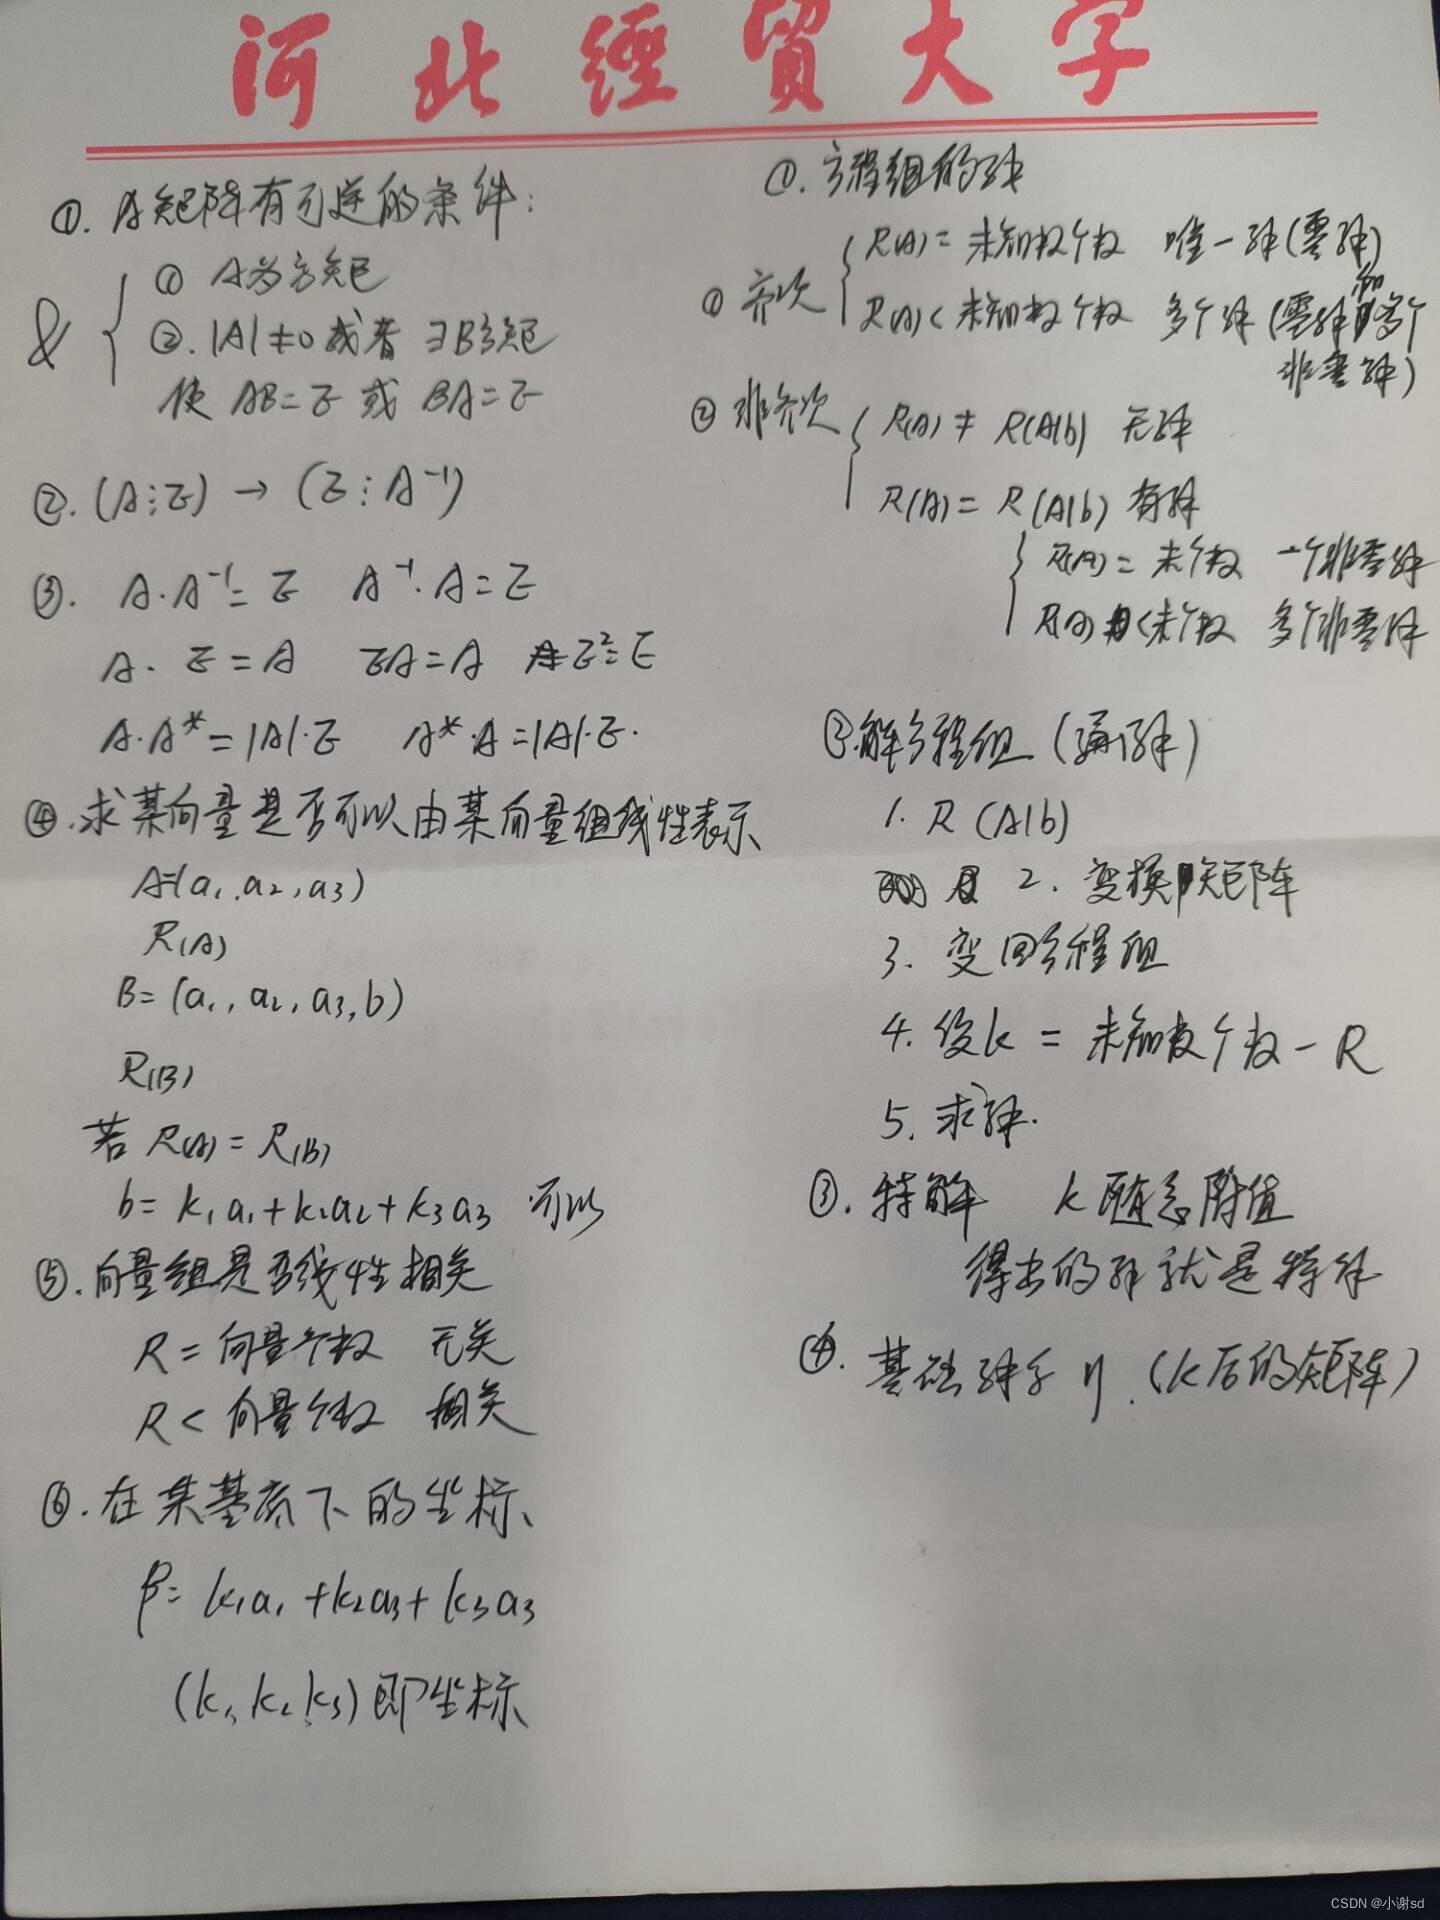 河北經貿大学
①. A矩阵有可逆的条件:
& { ① A为方矩
②. |A|≠0 或者 ∃B方矩
使 AB=E 或 BA=E
②. (A⋮E) → (E⋮A⁻¹)
③. A·A⁻¹=E A⁻¹·A=E
A·E=A EA=A E²=E
A·A*=|A|·E A*·A=|A|·E.
④. 求某向量是否可以由某向量组线性表示
A=(a₁,a₂,a₃)
R(A)
B=(a₁,a₂,a₃,b)
R(B)
若 R(A)=R(B)
b=k₁a₁+k₂a₂+k₃a₃ 可以
⑤. 向量组是否线性相关
R=向量个数 无关
R<向量个数 相关
⑥. 在某基底下的坐标、
β=k₁a₁+k₂a₃+k₃a₃
(k₁,k₂,k₃)即坐标
①. 方程组的解
① 齐次 { R(A)=未知数个数 唯一解(零解)
R(A)<未知数个数 多个解(零解和多个
非零解)
② 非齐次 { R(A)≠R(A|b) 无解
R(A)=R(A|b) 有解
{ R(A)=未个数 一个非零解
R(A)<未个数 多个非零解
②. 解方程组(通解)
1. R(A|b)
2. 变换矩阵
3. 变回方程组
4. 设k=未知数个数-R
5. 求解.
③. 特解 k随意附值
得出的解就是特解
④. 基础解系 η.(k后的矩阵)
CSDN @小谢sd